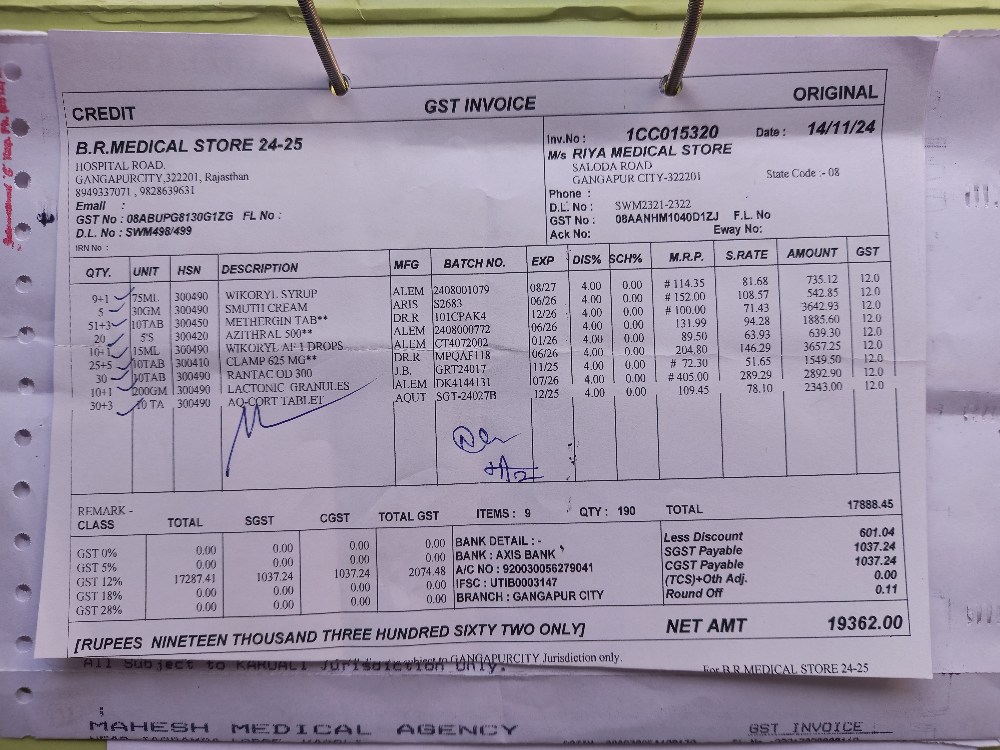 CREDIT GST INVOICE ORIGINAL
B.R.MEDICAL STORE 24-25
HOSPITAL ROAD.
GANGAPURCITY,322201, Rajasthan
8949337071 , 9828639631
Email :
GST No : 08ABUPG8130G1ZG FL No :
D.L. No : SWM498/499
IRN No :
Inv.No : 1CC015320 Date : 14/11/24
M/s RIYA MEDICAL STORE
SALODA ROAD
GANGAPUR CITY-322201 State Code :- 08
Phone :
D.L. No : SWM2321-2322
GST No : 08AANHM1040D1ZJ F.L. No
Ack No: Eway No:
QTY. UNIT HSN DESCRIPTION MFG BATCH NO. EXP DIS% SCH% M.R.P. S.RATE AMOUNT GST
9+1 75ML 300490 WIKORYL SYRUP ALEM 2408001079 08/27 4.00 0.00 # 114.35 81.68 735.12 12.0
5 30GM 300490 SMUTH CREAM ARIS S2683 06/26 4.00 0.00 # 152.00 108.57 542.85 12.0
51+3 10TAB 300450 METHERGIN TAB** DR.R 101CPAK4 12/26 4.00 0.00 # 100.00 71.43 3642.93 12.0
20 5'S 300420 AZITHRAL 500** ALEM 2408000772 06/26 4.00 0.00 131.99 94.28 1885.60 12.0
10+1 15ML 300490 WIKORYL AF 1 DROPS ALEM CT4072002 01/26 4.00 0.00 89.50 63.93 639.30 12.0
25+5 10TAB 300410 CLAMP 625 MG** DR.R MPQAF118 06/26 4.00 0.00 204.80 146.29 3657.25 12.0
30 300490 RANTAC OD 300 J.B. GRT24017 11/25 4.00 0.00 # 72.30 51.65 1549.50 12.0
10+1 200GM 300490 LACTONIC GRANULES ALEM DK4144131 07/26 4.00 0.00 # 405.00 289.29 2892.90 12.0
30+3 10 TA 300490 AQ-CORT TABLET AQUT SGT-24027B 12/25 4.00 0.00 109.45 78.10 2343.00 12.0
REMARK -
CLASS TOTAL SGST CGST TOTAL GST
GST 0% 0.00 0.00 0.00 0.00
GST 5% 0.00 0.00 0.00 0.00
GST 12% 17287.41 1037.24 1037.24 2074.48
GST 18% 0.00 0.00 0.00 0.00
GST 28% 0.00 0.00 0.00 0.00
ITEMS : 9 QTY : 190
BANK DETAIL : -
BANK : AXIS BANK
A/C NO : 920030056279041
IFSC : UTIB0003147
BRANCH : GANGAPUR CITY
TOTAL 17888.45
Less Discount 601.04
SGST Payable 1037.24
CGST Payable 1037.24
(TCS)+Oth Adj. 0.00
Round Off 0.11
[RUPEES NINETEEN THOUSAND THREE HUNDRED SIXTY TWO ONLY] NET AMT 19362.00
GANGAPURCITY Jurisdiction only.
All Subject to KARUALI Jurisdiction Only.
For B.R.MEDICAL STORE 24-25
MAHESH MEDICAL AGENCY GST INVOICE